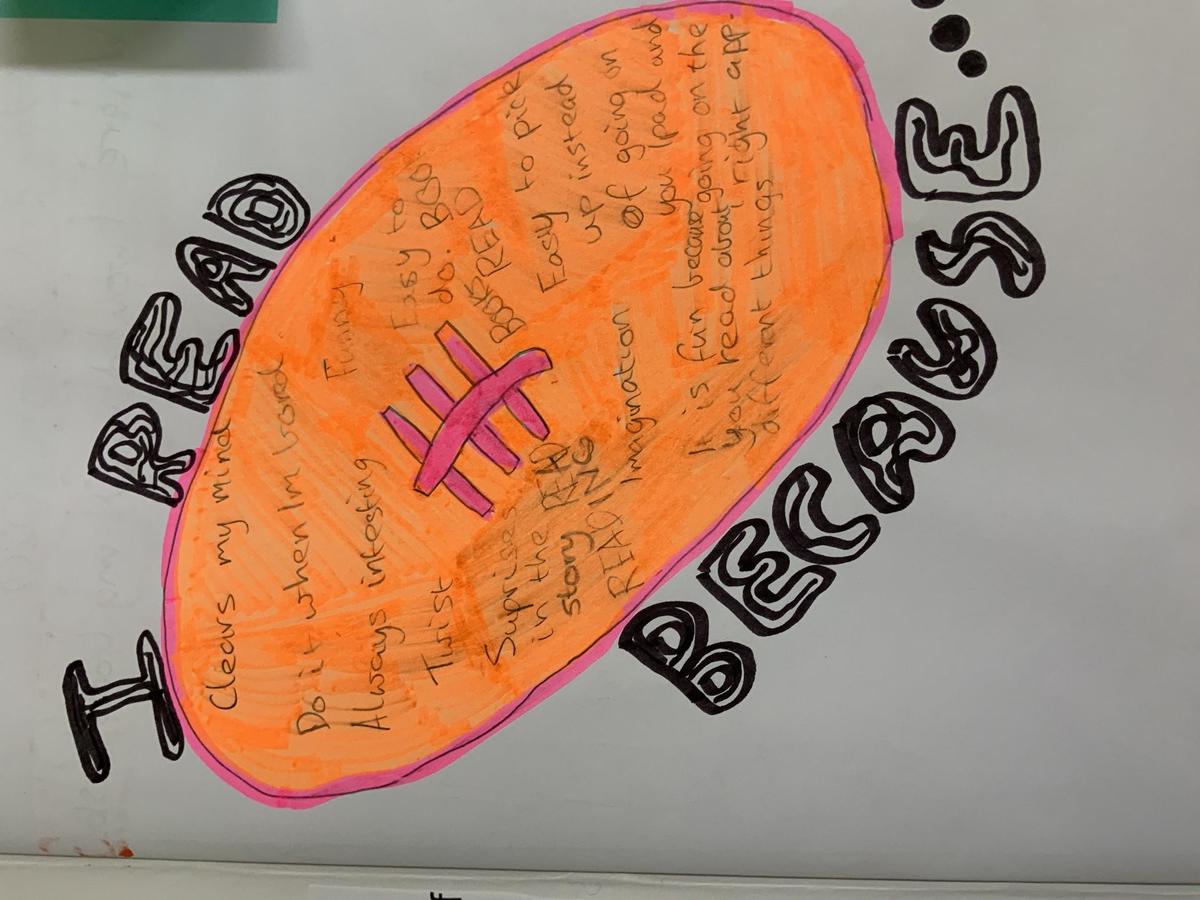 I READ
BECAUSE...
Clears my mind
Do it when Im bored
Always intesting
Twist
Suprises
in the
story
READ
READING
Imagination
Funny
Easy to
do.
BOO
READ
Books
Easy to pick
up instead
of going on
you ipad and
going on the
right app.
It is fun because
you read about
different things
f